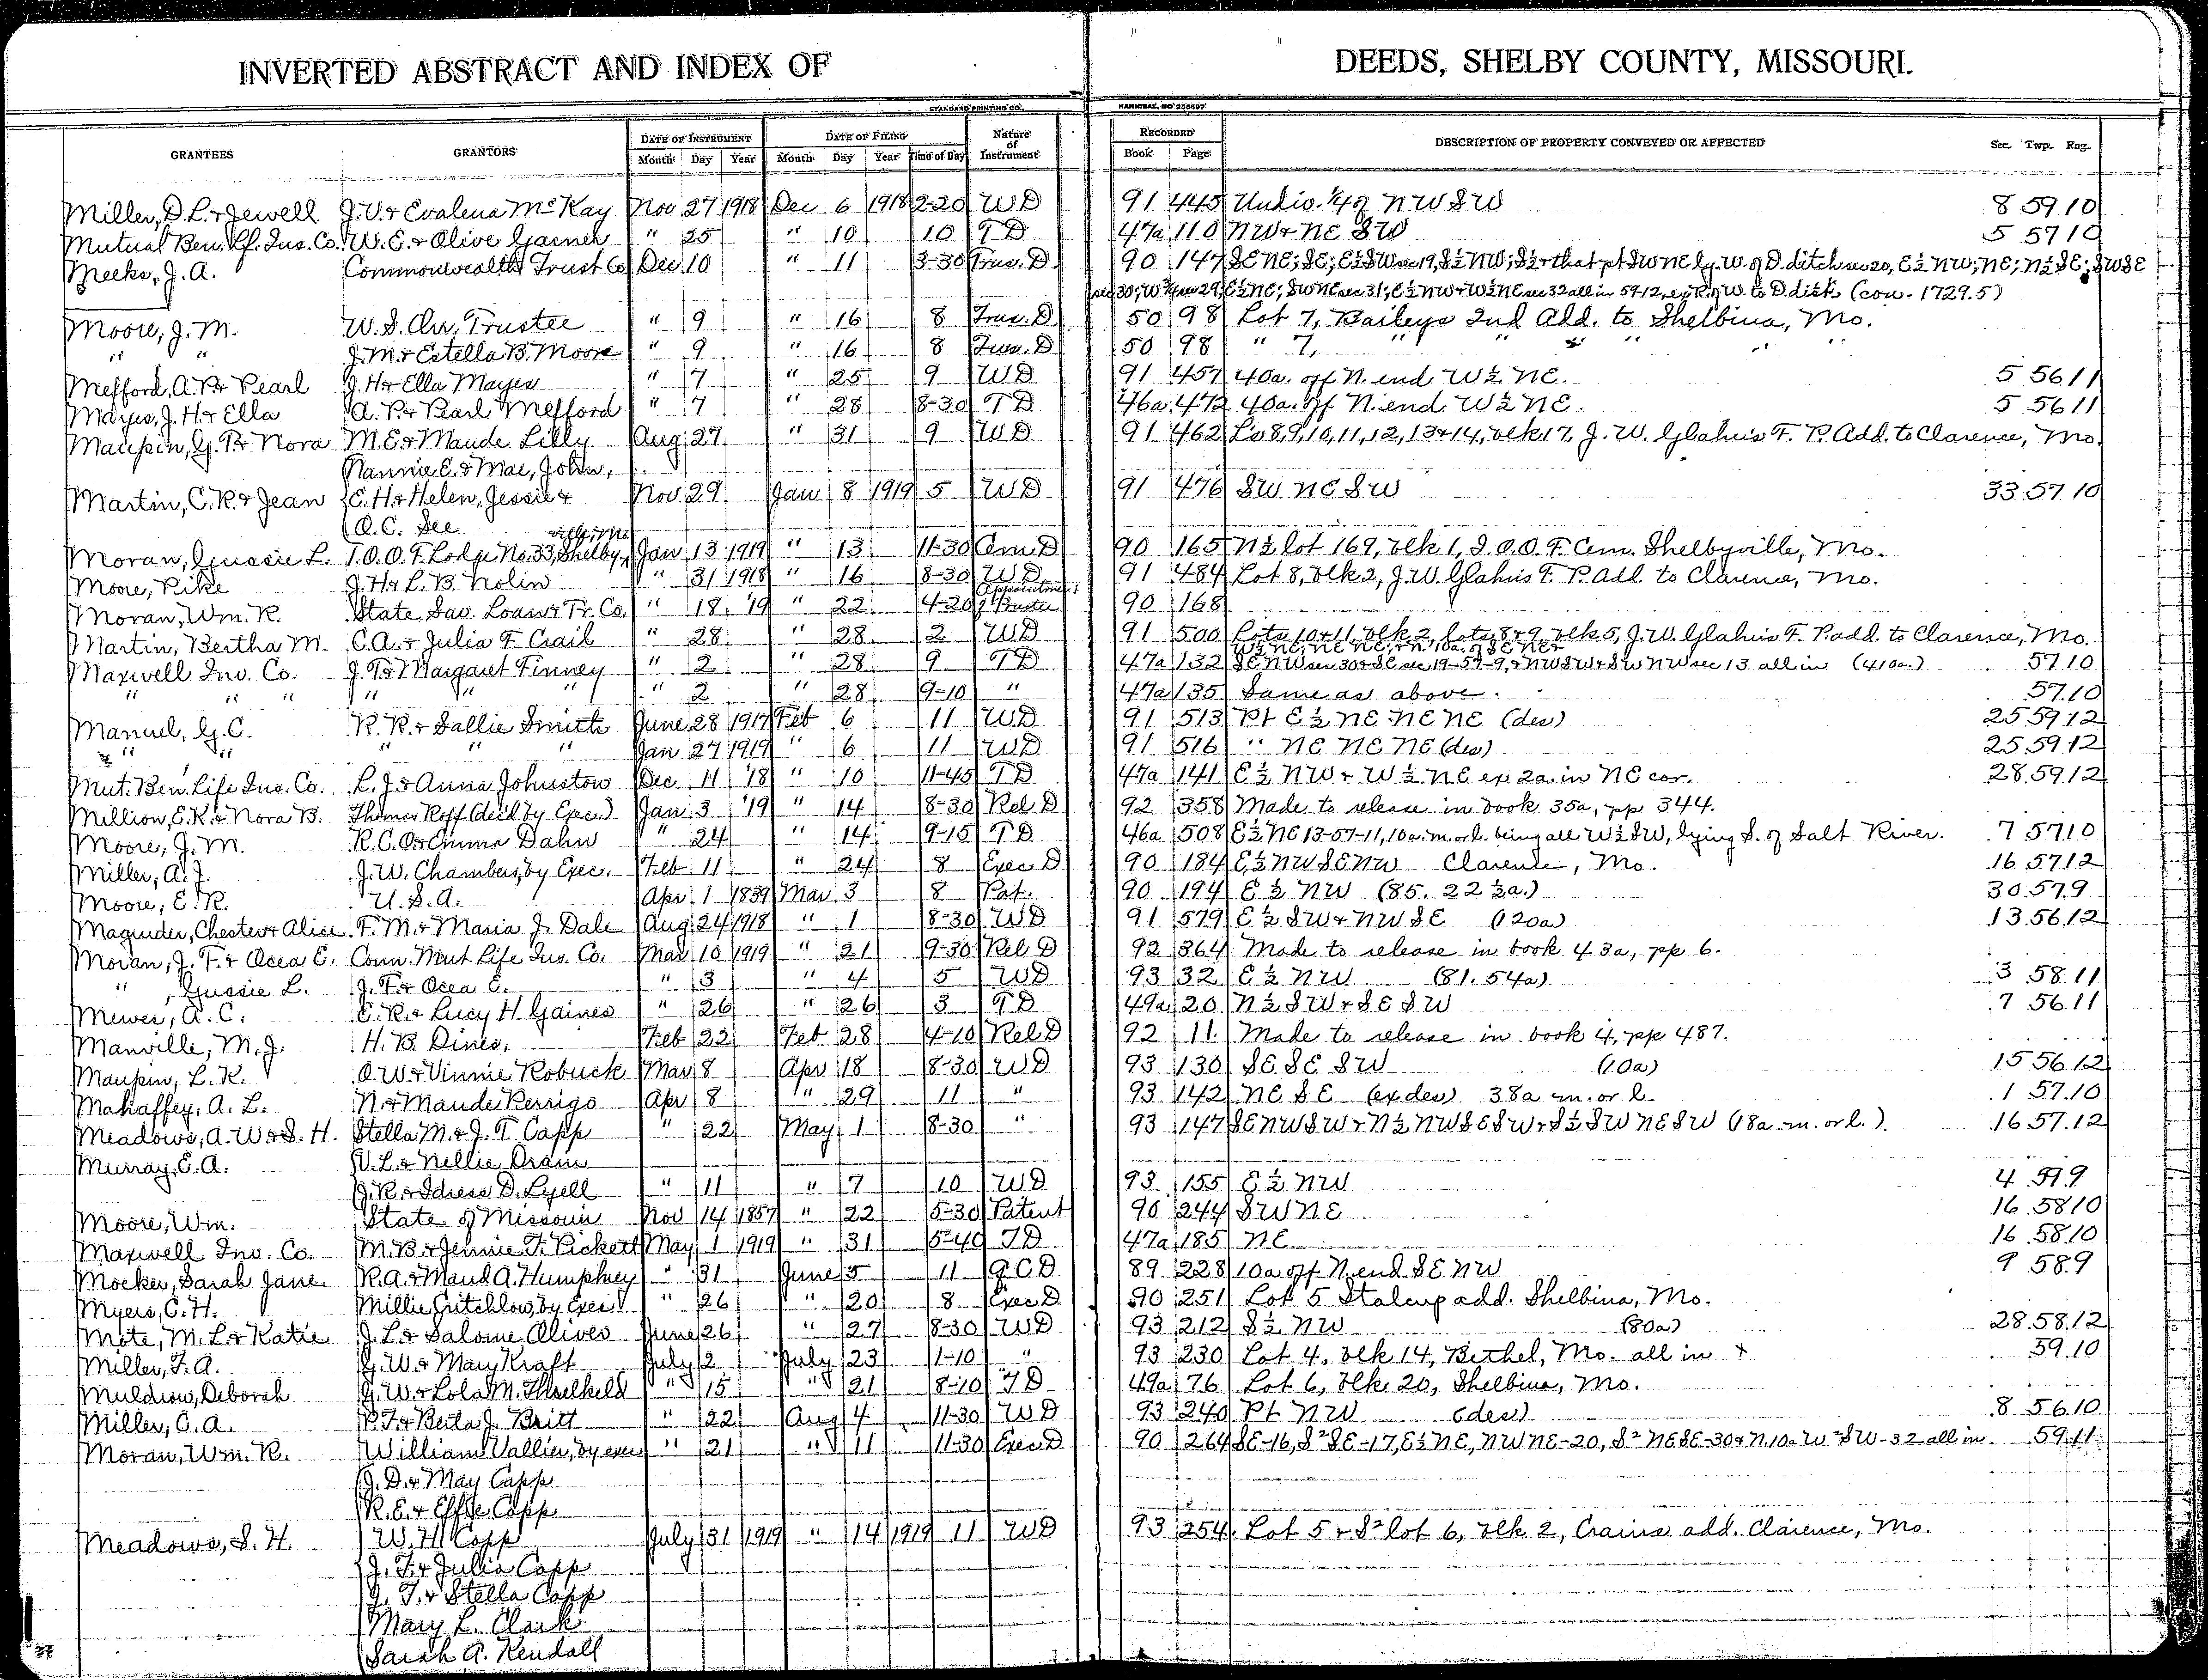 INVERTED ABSTRACT AND INDEX OF DEEDS, SHELBY COUNTY, MISSOURI.
STANDARD PRINTING CO. HANNIBAL, MO
GRANTEES GRANTORS DATE OF INSTRUMENT DATE OF FILING Nature of Instrument RECORDED DESCRIPTION OF PROPERTY CONVEYED OR AFFECTED Sec. Twp. Rng.
Month Day Year Month Day Year Time of Day Book Page
Miller, D. L. & Jewell J. V. & Evalena McKay Nov 27 1918 Dec 6 1918 2-20 WD 91 445 Undiv. 1/4 of NW SW 8 59 10
Mutual Ben. Lf. Ins. Co. W. E. & Olive Garner " 25 " 10 10 TD 47a 110 NW & NE SW 5 57 10
Meeks, J. A. Commonwealth Trust Co Dec 10 " 11 3-30 Trus. D 90 147 SE NE; SE; E½ SW sec 19, S½ NW; S½ & that pt SW NE ly. W. of D. ditch sec 20, E½ NW; NE; N½ SE; SW SE
sec 30; W¾ sec 29; E½ NE; SW NE sec 31; E½ NW & W½ NE sec 32 all in 59-12, ex R. of W. to D. dist. (con. 1729.5)
Moore, J. M. W. S. Orr, Trustee " 9 " 16 8 Trus. D 50 98 Lot 7, Baileys 2nd Add. to Shelbina, Mo.
" " J. M. & Estella B. Moore " 9 " 16 8 Trus. D 50 98 " 7, " " " " "
Mefford, A. P. & Pearl J. H. & Ella Mayes " 7 " 25 9 WD 91 457 40a. off N. end W½ NE. 5 56 11
Mayes, J. H. & Ella A. P. & Pearl Mefford " 7 " 28 8-30 TD 46a 472 40a. off N. end W½ NE. 5 56 11
Maupin, G. P. & Nora M. E. & Maude Lilly Aug 27 " 31 9 WD 91 462 L's 8, 9, 10, 11, 12, 13 & 14, blk 17, J. W. Glahn's F. P. Add. to Clarence, Mo.
Nannie E. & Mae, John,
Martin, C. R. & Jean E. H. & Helen, Jessie & Nov 29 Jan 8 1919 5 WD 91 476 SW NE SW 33 57 10
O. C. See
ville, Mo
Moran, Gussie L. I.O.O.F. Lodge No. 33, Shelby Jan 13 1919 " 13 11-30 Cem D 90 165 N½ lot 169, blk 1, I.O.O.F. Cem. Shelbyville, Mo.
Moore, Pike J. H. & L. B. Nolin " 31 1918 " 16 8-30 WD 91 484 Lot 8, blk 2, J. W. Glahn's F. P. Add. to Clarence, Mo.
Moran, Wm. R. State Sav. Loan & Tr. Co. " 18 '19 " 22 4-20 Appointment of Trustee 90 168
Martin, Bertha M. C. A. & Julia F. Crail " 28 " 28 2 WD 91 500 Lots 10 & 11, blk 2, Lots 8 & 9, blk 5, J. W. Glahn's F. P. add. to Clarence, Mo.
W½ NE; NE NE & n. 10a. of SE NE &
Maxwell Inv. Co. J. T. & Margaret Finney " 2 " 28 9 TD 47a 132 SE NW sec 30 & SE sec 19-57-9, & NW SW & SW NW sec 13 all in (410a.) 57 10
" " " " " " " 2 " 28 9-10 " 47a 135 Same as above. 57 10
Manuel, G. C. R. R. & Sallie Smith June 28 1917 Feb 6 11 WD 91 513 Pt E½ NE NE NE (des) 25 59 12
" " " " " Jan 27 1919 " 6 11 WD 91 516 " NE NE NE (des) 25 59 12
Mut. Ben. Life Ins. Co. L. J. & Anna Johnston Dec 11 '18 " 10 11-45 TD 47a 141 E½ NW & W½ NE ex 2a. in NE cor. 28 59 12
Million, E. K. & Nora B. Thomas Roff (dec'd by Exec.) Jan 3 '19 " 14 8-30 Rel D 92 358 Made to release in book 35a, pp 344.
Moore, J. M. R. C. O. & Emma Dahn " 24 " 14 9-15 TD 46a 508 E½ NE 13-57-11, 10a. m. or l. being all W½ SW, lying S. of Salt River. 7 57 10
Miller, A. J. J. W. Chambers, by Exec. Feb 11 " 24 8 Exec D 90 184 E½ NW SE NW Clarence, Mo. 16 57 12
Moore, E. R. U. S. A. Apr 1 1839 Mar 3 8 Pat. 90 194 E½ NW (85.22½a.) 30 57 9
Magruder, Chester & Alice F. M. & Maria J. Dale Aug 24 1918 " 1 8-30 WD 91 579 E½ SW & NW SE (120a) 13 56 12
Moran, J. F. & Ocea E. Conn. Mut. Life Ins. Co. Mar 10 1919 " 21 9-30 Rel D 92 364 Made to release in book 43a, pp 6.
" , Gussie L. J. F. & Ocea E. " 3 " 4 5 WD 93 32 E½ NW (81.54a) 3 58 11
Mewes, A. C. E. R. & Lucy H. Gaines " 26 " 26 3 TD 49a 20 N½ SW & SE SW 7 56 11
Manville, M. J. H. B. Dines, Feb 22 Feb 28 4-10 Rel D 92 11 Made to release in book 4, pp 487.
Maupin, L. K. O. W. & Vinnie Robuck Mar 8 Apr 18 8-30 WD 93 130 SE SE SW (10a) 15 56 12
Mahaffey, A. L. N. & Maude Perrigo Apr 8 " 29 11 " 93 142 NE SE (ex des) 38a m. or l. 1 57 10
Meadows, A. W. & S. H. Stella M. & J. T. Capp " 22 May 1 8-30 " 93 147 SE NW SW & N½ NW SE SW & S½ SW NE SW (18a. m. or l.). 16 57 12
Murray, E. A. V. L. & Nellie Drain
J. R. & Idress D. Lyell " 11 " 7 10 WD 93 155 E½ NW 4 59 9
Moore, Wm. State of Missouri Nov 14 1857 " 22 5-30 Patent 90 244 SW NE 16 58 10
Maxwell Inv. Co. M. B. & Jennie F. Pickett May 1 1919 " 31 5-40 TD 47a 185 NE 16 58 10
Mocker, Sarah Jane R. A. & Maud A. Humphrey " 31 June 5 11 QCD 89 228 10a off N. end SE NW 9 58 9
Myers, C. H. Millie Critchlow, by Exec " 26 " 20 8 Exec D 90 251 Lot 5 Stalcup add. Shelbina, Mo.
Mote, M. L. & Katie J. L. & Salome Oliver June 26 " 27 8-30 WD 93 212 S½ NW (80a) 28 58 12
Miller, F. A. G. W. & Mary Kraft July 2 July 23 1-10 " 93 230 Lot 4, blk 14, Bethel, Mo. all in 59 10
Muldrow, Deborah J. W. & Lola M. Threlkeld " 15 " 21 8-10 TD 49a 76 Lot 6, blk 20, Shelbina, Mo.
Miller, C. A. P. F. & Berta J. Britt " 22 Aug 4 11-30 WD 93 240 Pt NW (des) 8 56 10
Moran, Wm. R. William Vallier, by exec " 21 " 11 11-30 Exec D 90 264 SE-16, S² SE-17, E½ NE, NW NE-20, S² NE SE-30 & N. 10a W² SW-32 all in 59 11
J. D. & May Capp
R. E. & Effie Capp
Meadows, S. H. W. H. Capp July 31 1919 " 14 1919 11 WD 93 254 Lot 5 & S² lot 6, blk 2, Crains add. Clarence, Mo.
J. F. & Julia Capp
J. T. & Stella Capp
Mary L. Clark
Sarah A. Kendall